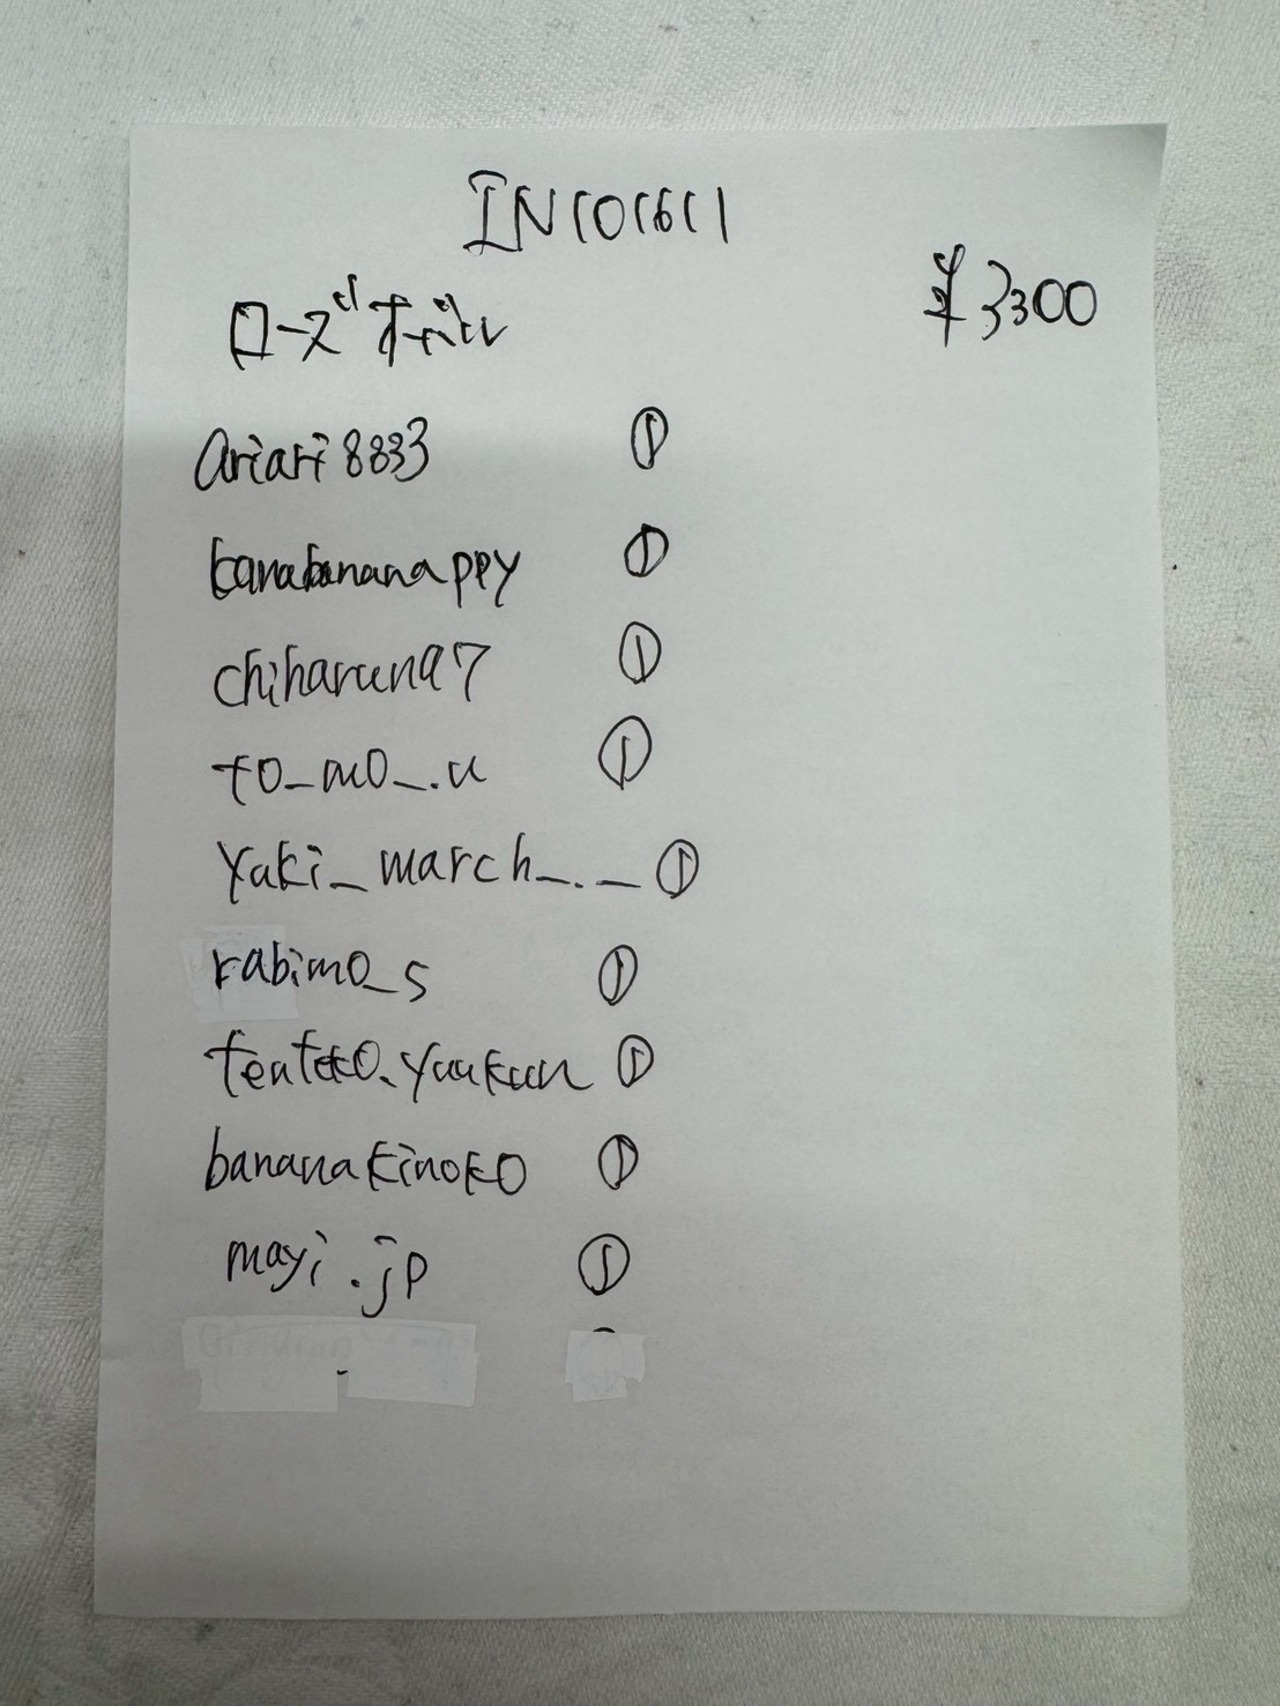 IN101611
ローズオーイル
¥3300
ariari8833 ①
kanabananappy ①
chiharuna7 ①
to_mo_.u ①
yuki_march_._ ①
rabimo_s ①
tenteko.yuukun ①
bananakinoko ①
mayi.jp ①